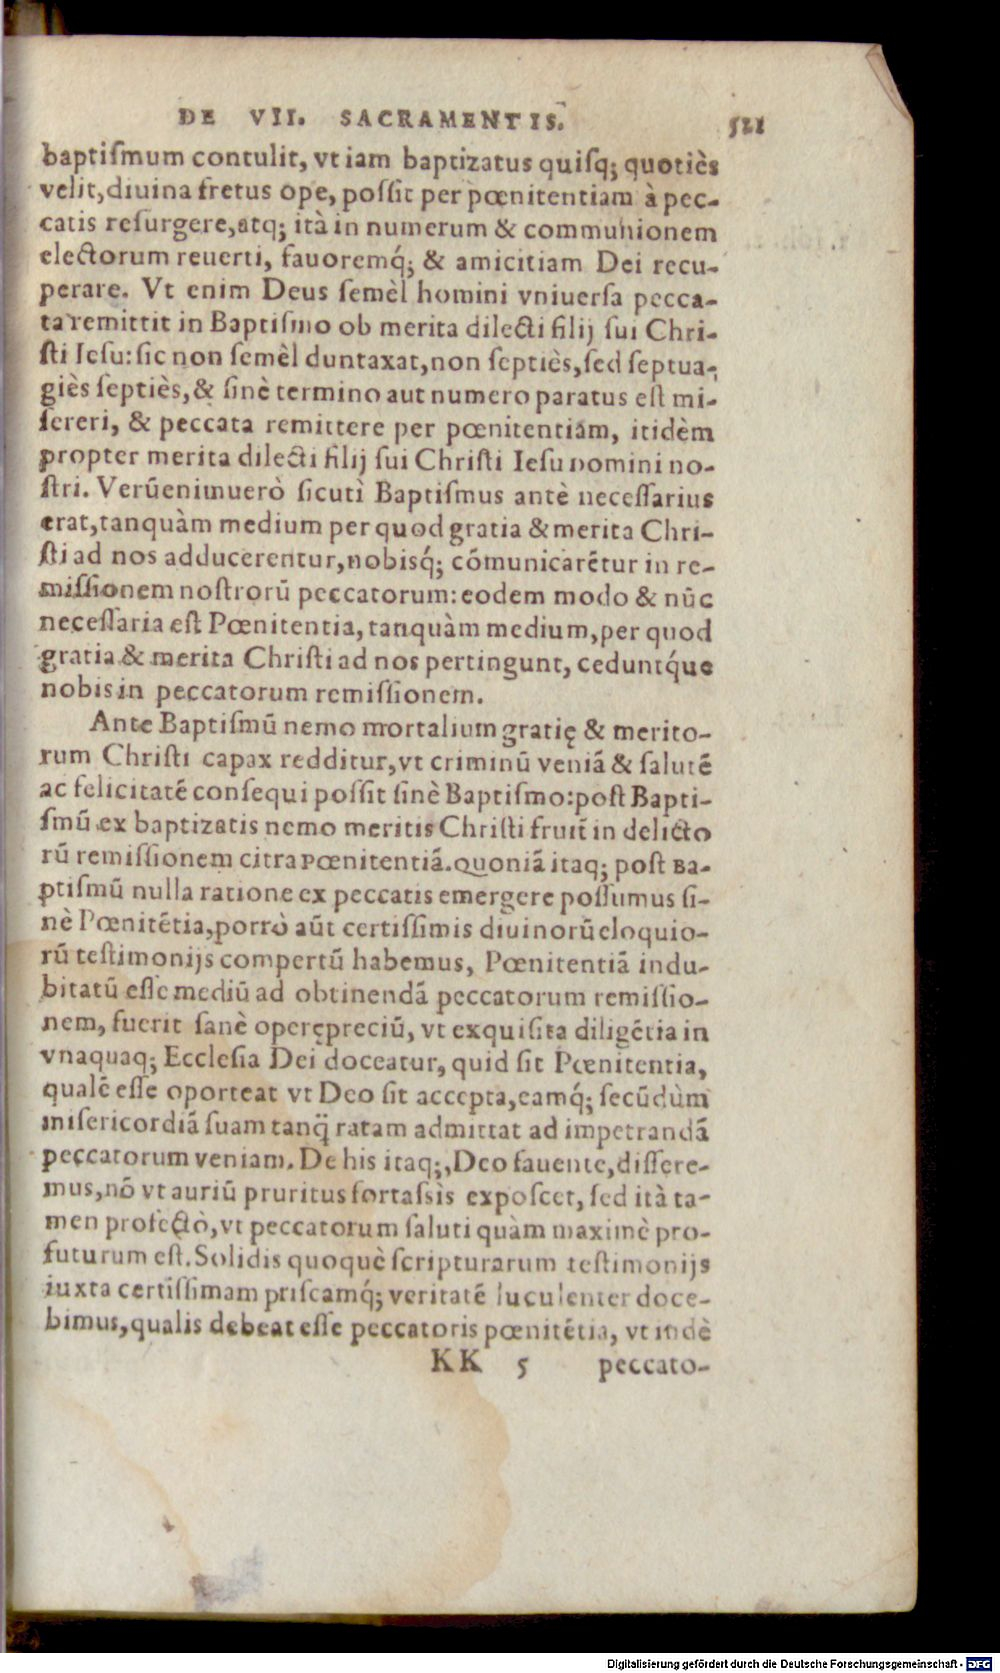 DE VII. SACRAMENTIS. 521
baptiſmum contulit, vt iam baptizatus quiſq; quotiès
velit, diuina fretus ope, poſsit per pœnitentiam à pec-
catis reſurgere, atq; ità in numerum & communionem
electorum reuerti, fauoremq́; & amicitiam Dei recu-
perare. Vt enim Deus ſemèl homini vniuerſa pecca-
ta remittit in Baptiſmo ob merita dilecti filij ſui Chri-
ſti Ieſu: ſic non ſemèl duntaxat, non ſeptiès, ſed ſeptua-
giès ſeptiès, & ſinè termino aut numero paratus eſt mi-
ſereri, & peccata remittere per pœnitentiam, itidèm
propter merita dilecti filij ſui Chriſti Ieſu nomini no-
ſtri. Verūenimuerò ſicutì Baptiſmus antè neceſſarius
erat, tanquàm medium per quod gratia & merita Chri-
ſti ad nos adducerentur, nobisq́; cōmunicarētur in re-
miſsionem noſtrorū peccatorum: eodem modo & nūc
neceſſaria eſt Pœnitentia, tanquàm medium, per quod
gratia & merita Chriſti ad nos pertingunt, ceduntq́ue
nobis in peccatorum remiſsionem.
Ante Baptiſmū nemo mortalium gratię & merito-
rum Chriſti capax redditur, vt criminū veniā & ſalutē
ac felicitatē conſequi poſsit ſinè Baptiſmo: poſt Bapti-
ſmū ex baptizatis nemo meritis Chriſti fruit̄ in delicto
rū remiſsionem citra Pœnitentiā. Quoniā itaq; poſt Ba-
ptiſmū nulla ratione ex peccatis emergere poſſumus ſi-
nè Pœnitētia, porrò aūt certiſsimis diuinorū eloquio-
rū teſtimonijs compertū habemus, Pœnitentiā indu-
bitatū eſſe mediū ad obtinendā peccatorum remiſsio-
nem, fuerit ſanè operępreciū, vt exquiſita diligētia in
vnaquaq; Eccleſia Dei doceatur, quid ſit Pœnitentia,
qualē eſſe oporteat vt Deo ſit accepta, eamq́; ſecūdùm
miſericordiā ſuam tanq̄ ratam admittat ad impetrandā
peccatorum veniam. De his itaq;, Deo fauente, differe-
mus, nō vt auriū pruritus fortaſsis expoſcet, ſed ità ta-
men profectò, vt peccatorum ſaluti quàm maximè pro-
futurum eſt. Solidis quoquè ſcripturarum teſtimonijs
iuxta certiſsimam priſcamq́; veritatē luculenter doce-
bimus, qualis debeat eſſe peccatoris pœnitētia, vt indè
KK 5 peccato-
Digitalisierung gefördert durch die Deutsche Forschungsgemeinschaft - DFG